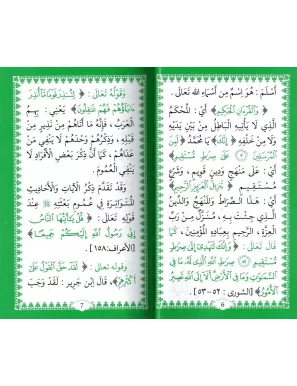 أسلم : هو اسم من أسماء الله تعالى .
﴿ وَالْقُرْءَانِ الْحَكِيمِ ﴾ أي : المُحْكَمُ
الذي لا يأتيه الباطل من بين يديه
ولا من خلفه ﴿ إِنَّكَ ﴾ يا محمد ﴿ لَمِنَ
الْمُرْسَلِينَ ۝ عَلَىٰ صِرَاطٍ مُّسْتَقِيمٍ ۝
أي : على منهج ودين قويم ، وشرع
مستقيم ﴿ تَنزِيلَ الْعَزِيزِ الرَّحِيمِ ﴾
أي : هذا الصراط والمنهج والدين
الذي جئت به ، مُنَزَّلٌ من رب
العزة ، الرحيم بعباده المؤمنين ، كما
قال تعالى : ﴿ وَإِنَّكَ لَتَهْدِي إِلَىٰ صِرَاطٍ
مُّسْتَقِيمٍ ۝ صِرَاطِ اللَّهِ الَّذِي لَهُ مَا فِي
السَّمَاوَاتِ وَمَا فِي الْأَرْضِ أَلَا إِلَى اللَّهِ تَصِيرُ
الْأُمُورُ ﴾ [الشورى : ٥٢-٥٣] .
6
وقوله تعالى : ﴿ لِتُنذِرَ قَوْمًا مَّا أُنذِرَ
ءَابَاؤُهُمْ فَهُمْ غَافِلُونَ ﴾ يعني : بهم
العرب ، فإنه ما أتاهم من نذير من
قبله ، وذكرهم وحدهم لا ينفي من
عداهم ، كما أن ذكر بعض الأفراد لا
ينفي العموم .
وقد تقدم ذكر الآيات والأحاديث
المتواترة في عموم بعثته ﷺ عند
قوله تعالى : ﴿ قُلْ يَا أَيُّهَا النَّاسُ
إِنِّي رَسُولُ اللَّهِ إِلَيْكُمْ جَمِيعًا ﴾
[الأعراف : ١٥٨] .
وقوله تعالى : ﴿ لَقَدْ حَقَّ الْقَوْلُ عَلَىٰ
أَكْثَرِهِمْ ﴾ ، قال ابن جرير : لقد وجب
7